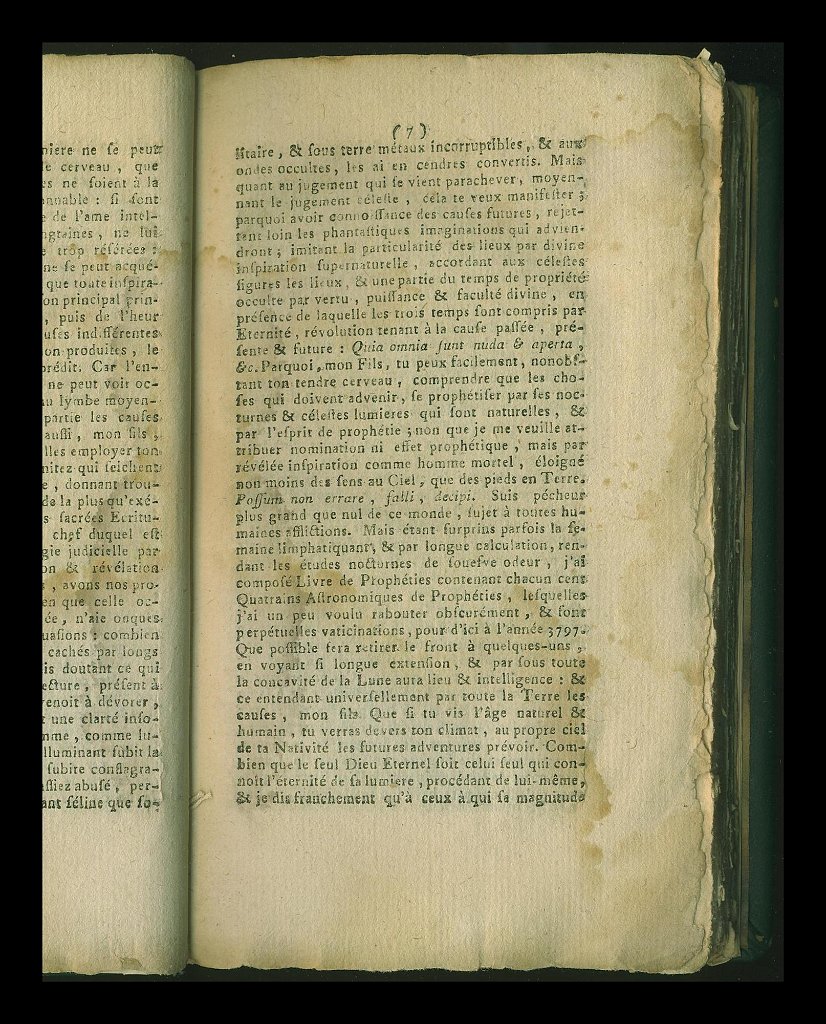 niere ne ſe peut
e cerveau, que
es ne ſoient à la
onnable : ſi ſont
e de l'ame intel-
ngraines, ne lui
e trop référées :
ne ſe peut acqué-
que toute inſpira-
on principal prin-
, puis de l'heur
uſes indifférentes
on produites, le
prédit. Car l'en-
ne peut voir oc-
u lymbe moyen-
partie les cauſes
auſſi, mon fils,
lles employer ton
nitez qui ſeichent
e, donnant trou-
de la plus qu'exé-
s ſacrées Ecritu-
chef duquel eſt
gie judicielle par
on & révélation
, avons nos pro-
en que celle oc-
ée, n'aie onques
uaſions : combien
cachés par longs
is doutant ce qui
ecture, préſent à
renoit à dévorer,
t une clarté inſo-
mme, comme lu-
lluminant ſubit la
ſubite conflagra-
aſſiez abuſé, per-
ant féline que ſo-
(7)
litaire, & ſous terre métaux incorruptibles, & aux
ondes occultes, les ai en cendres convertis. Mais
quant au jugement qui ſe vient parachever, moyen-
nant le jugement céleſte, cela te veux manifeſter ;
parquoi avoir connoiſſance des cauſes futures, rejet-
tant loin les phantaſtiques imaginations qui advien-
dront ; imitant la particularité des lieux par divine
inſpiration ſupernaturelle, accordant aux céleſtes
figures les lieux, & une partie du temps de propriété
occulte par vertu, puiſſance & faculté divine, en
préſence de laquelle les trois temps ſont compris par
Eternité, révolution tenant à la cauſe paſſée, pré-
ſente & future : Quia omnia ſunt nuda & aperta,
&c. Parquoi, mon Fils, tu peux facilement, nonobſ-
tant ton tendre cerveau, comprendre que les cho-
ſes qui doivent advenir, ſe prophétiſer par ſes noc-
turnes & céleſtes lumieres qui ſont naturelles, &
par l'eſprit de prophétie ; non que je me veuille at-
tribuer nomination ni effet prophétique, mais par
révélée inſpiration comme homme mortel, éloigné
non moins des ſens au Ciel, que des pieds en Terre.
Poſſum non errare, falli, decipi. Suis pécheur
plus grand que nul de ce monde, ſujet à toutes hu-
maines afflictions. Mais étant ſurprins parfois la ſe-
maine limphatiquant, & par longue calculation, ren-
dant les études nocturnes de ſouefve odeur, j'ai
compoſé Livre de Prophéties contenant chacun cent
Quatrains Aſtronomiques de Prophéties, leſquelles
j'ai un peu voulu rabouter obſcurément, & ſont
perpétuelles vaticinations, pour d'ici à l'année 3797.
Que poſſible fera retirer le front à quelques-uns,
en voyant ſi longue extenſion, & par ſous toute
la concavité de la Lune aura lieu & intelligence : &
ce entendant univerſellement par toute la Terre les
cauſes, mon fils. Que ſi tu vis l'âge naturel &
humain, tu verras devers ton climat, au propre ciel
de ta Nativité les futures adventures prévoir. Com-
bien que le ſeul Dieu Eternel ſoit celui ſeul qui con-
noit l'éternité de ſa lumiere, procédant de lui-même,
& je dis franchement qu'à ceux à qui ſa magnitude